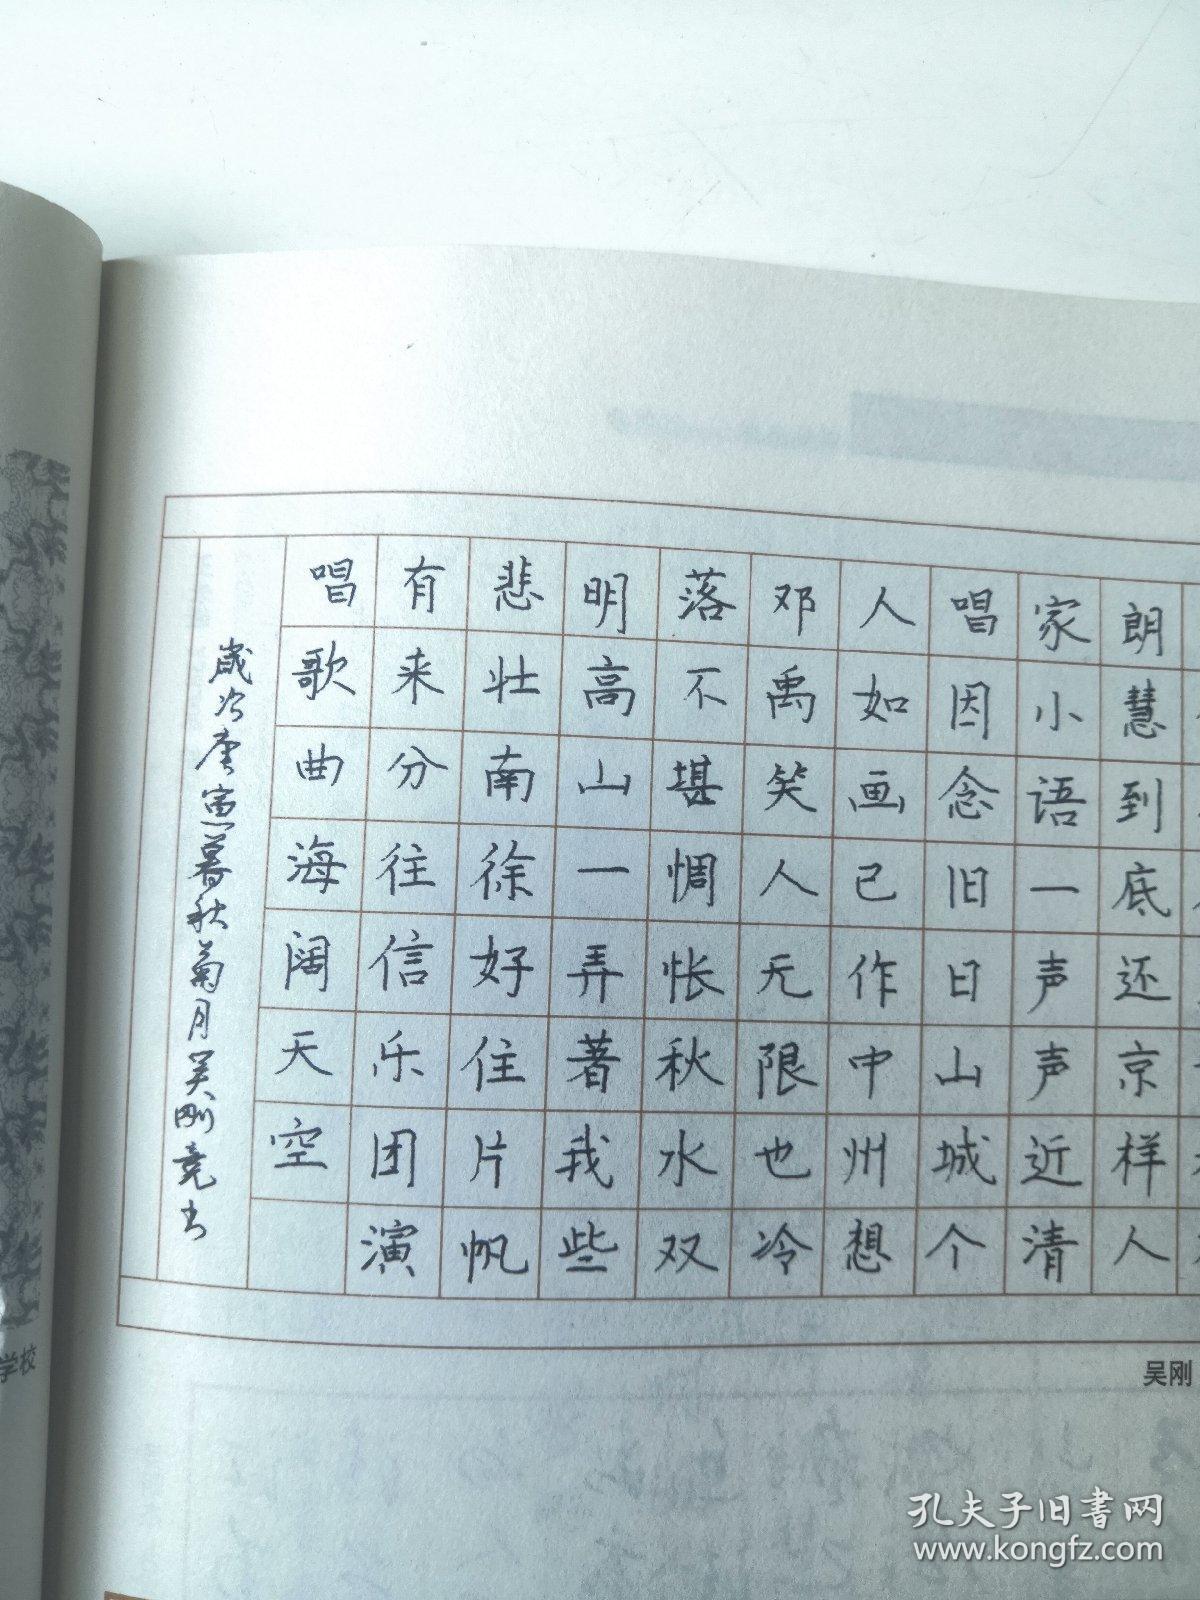 朗慧到底还京样人
家小语一声声近清
唱因念旧日山城个
人如画已作中州想
邓禹笑人无限也冷
落不堪惆怅秋水双
明高山一弄著我些
悲壮南徐好住片帆
有来分往信乐团演
唱歌曲海阔天空
岁次庚寅暮秋菊月吴刚竞书
吴刚
学校
孔夫子旧书网
www.kongfz.com